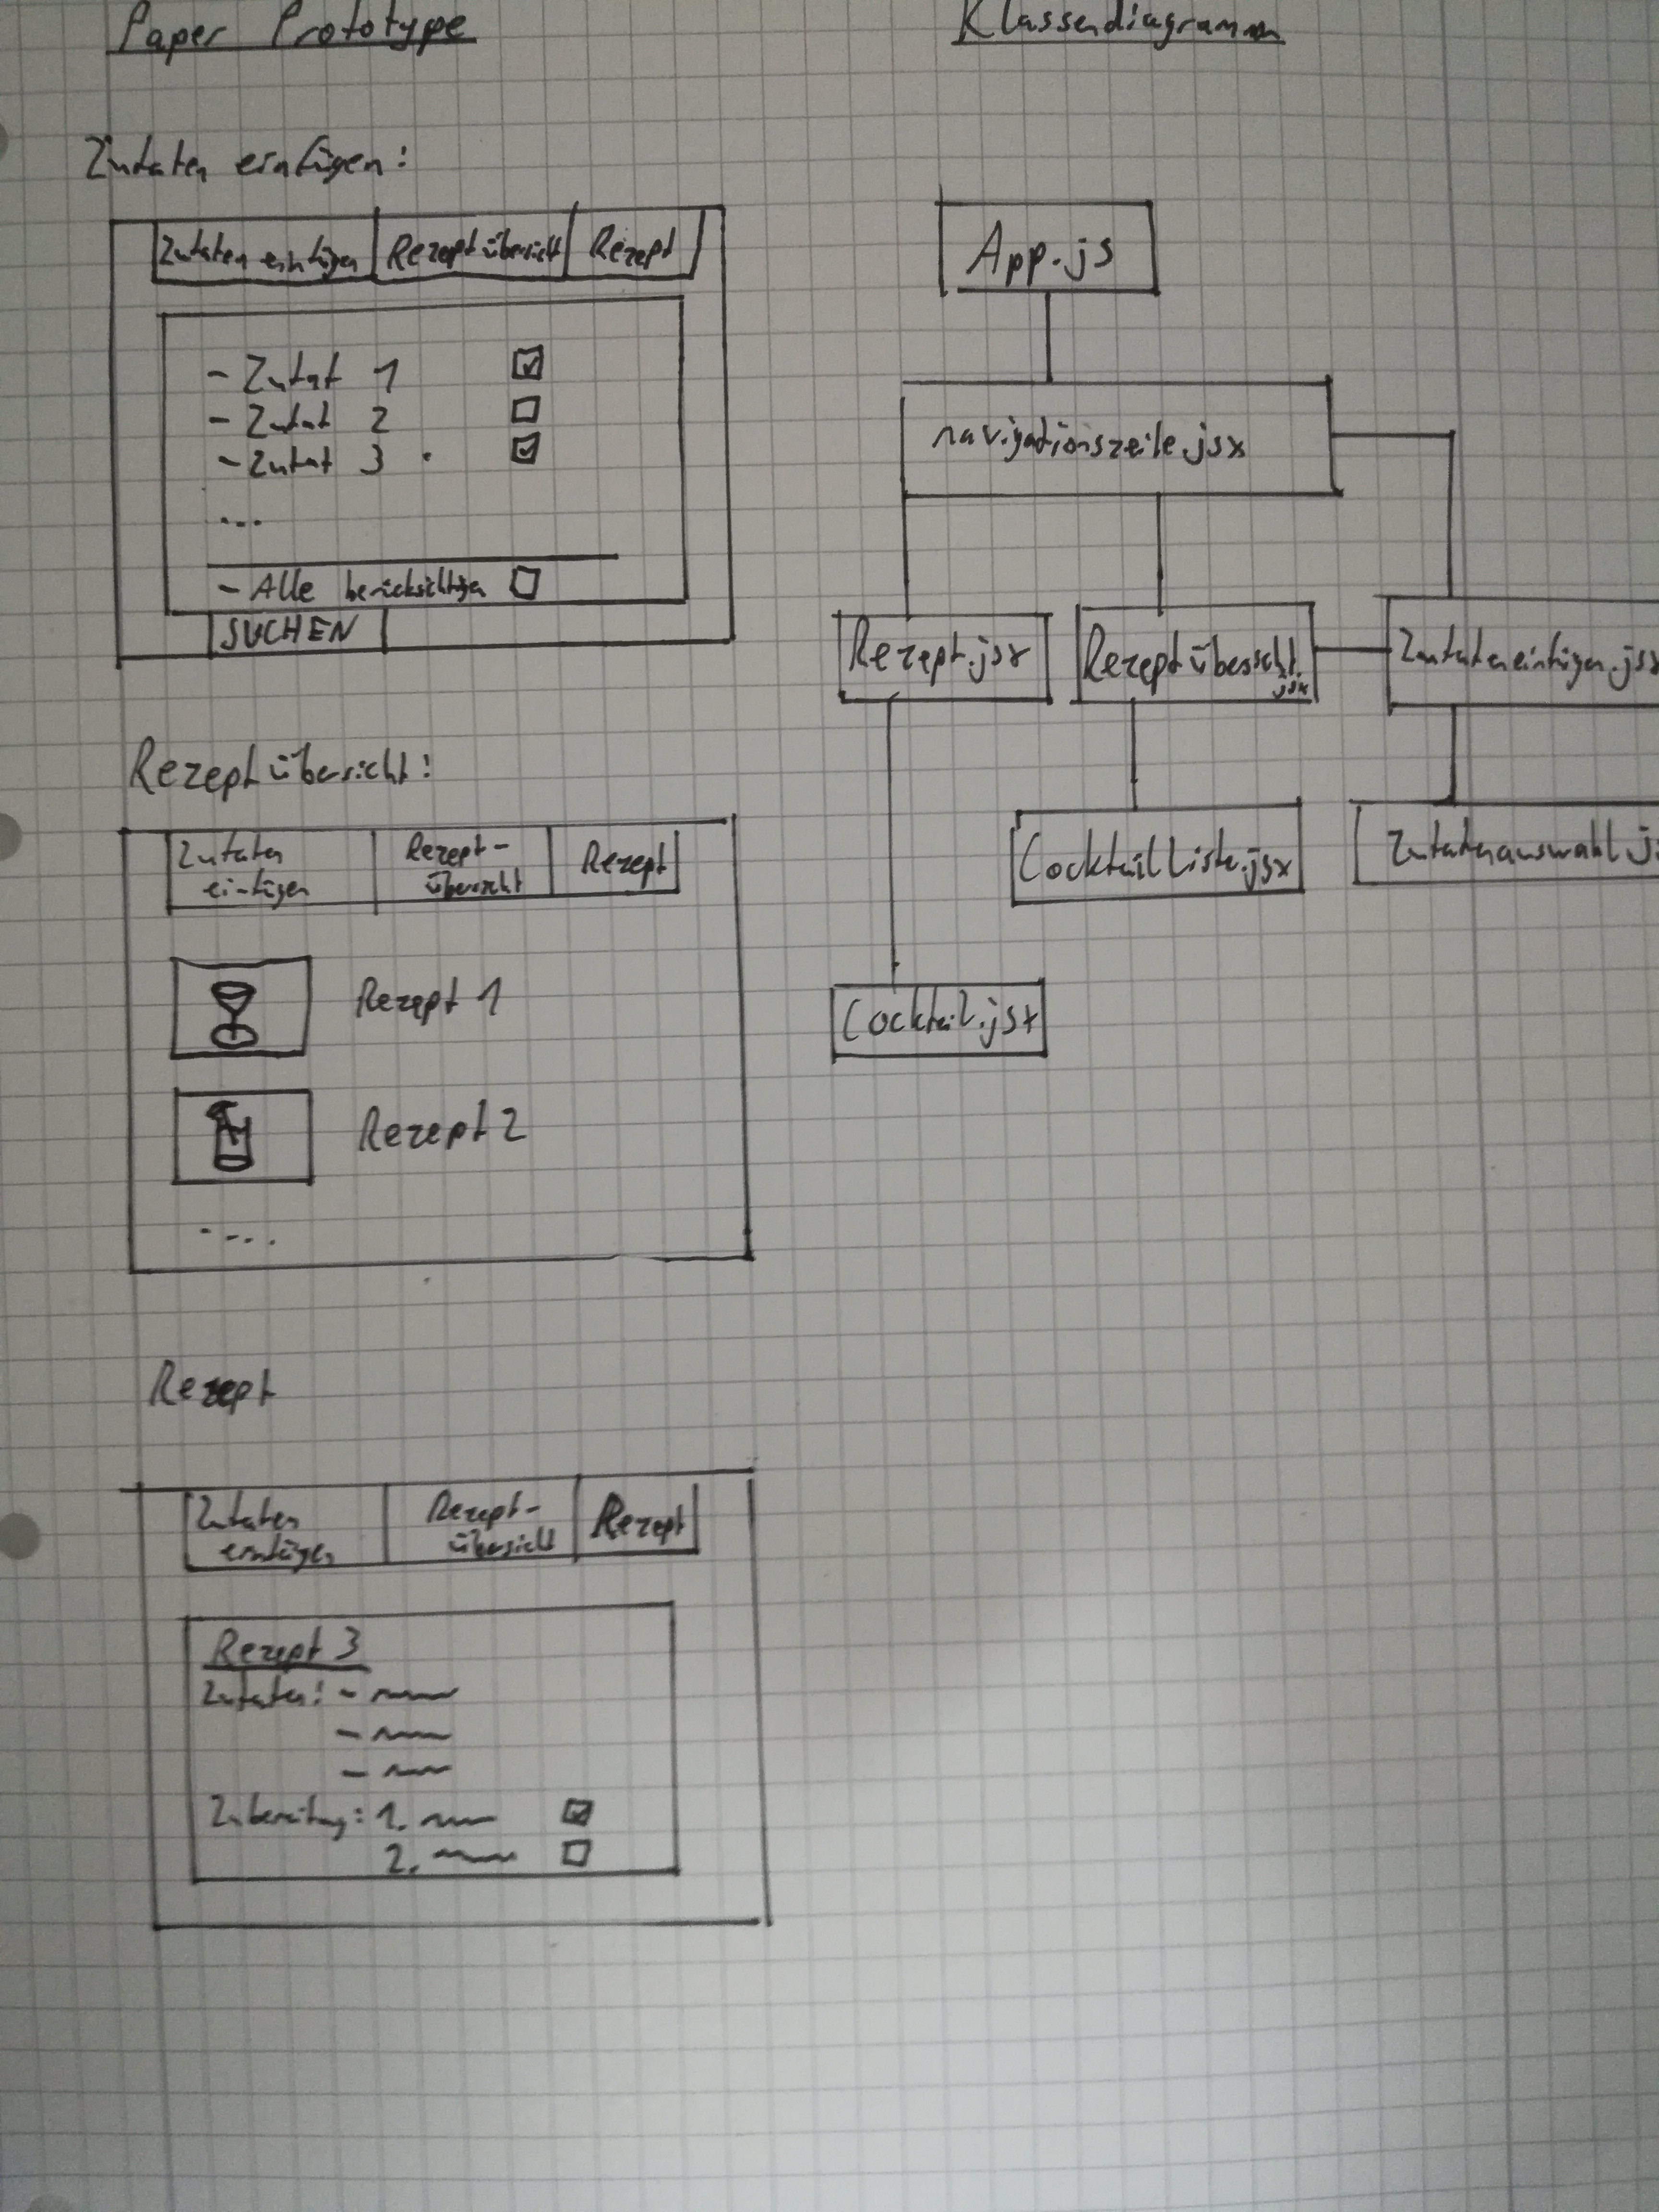 Paper Prototype
Zutaten einfügen:
Zutaten einfügen Rezeptübersicht Rezept
- Zutat 1
- Zutat 2
- Zutat 3
...
- Alle berücksichtigen
SUCHEN
Rezeptübersicht:
Zutaten Rezept- Rezept
einfügen übersicht
Rezept 1
Rezept 2
....
Rezept
Zutaten Rezept- Rezept
einfügen übersicht
Rezept 3
Zutaten: -
-
-
Zubereitung: 1.
2.
Klassendiagramm
App.js
navigationszeile.jsx
Rezept.jsx
Rezeptübersicht.
jsx
Zutateneinfügen.jsx
CocktailListe.jsx
Zutatenauswahl.js
Cocktail.jsx